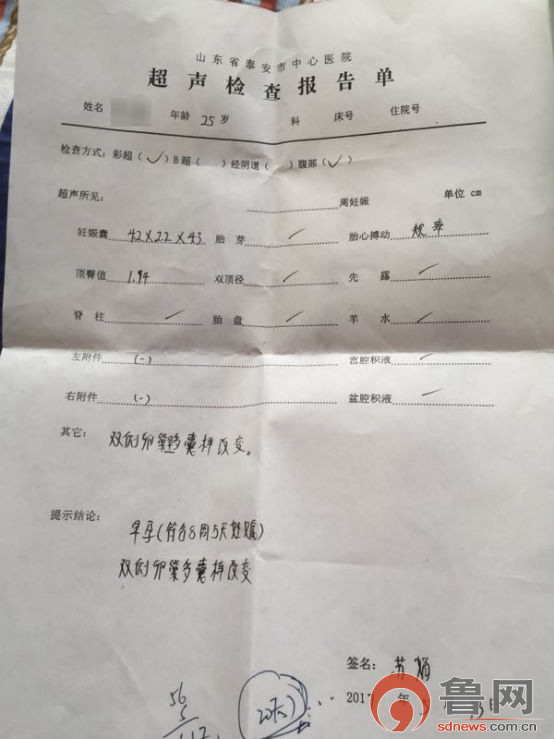 山东省泰安市中心医院
超声检查报告单
姓名 年龄 25 岁 科 床号 住院号
检查方式：彩超（✓）B超（ ）经阴道（ ）腹部（✓）
超声所见： 周妊娠 单位 cm
妊娠囊 42×22×43 胎芽 / 胎心搏动 规律
顶臀值 1.94 双顶径 / 先露 /
脊柱 / 胎盘 / 羊水 /
左附件 (-) 宫腔积液 /
右附件 (-) 盆腔积液 /
其它： 双侧卵巢多囊样改变。
提示结论：
早孕(符合8周5天妊娠)
双侧卵巢多囊样改变
签名：
2017 年 13日
56
5
鲁网
sdnews.com.cn